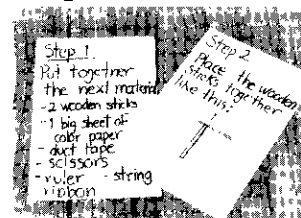 Step 1
Put together
the next material
- 2 wooden sticks
- 1 big sheet of
color paper
- duct tape
- scissors
- ruler - string
ribbon
Step 2
Place the wooden
sticks together
like this: